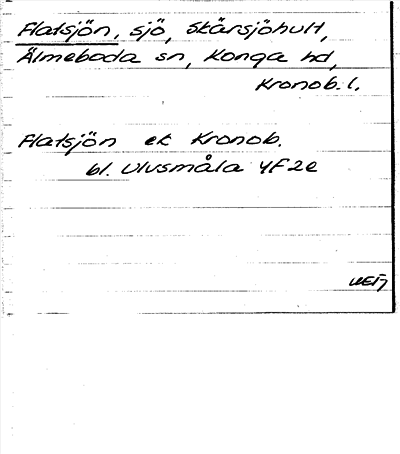 Flatsjön, sjö, Skärsjöhult,
Älmeboda sn, Konga hd,
Kronob. l.
Flatsjön ek Kronob.
bl. Ulvsmåla 4F2e